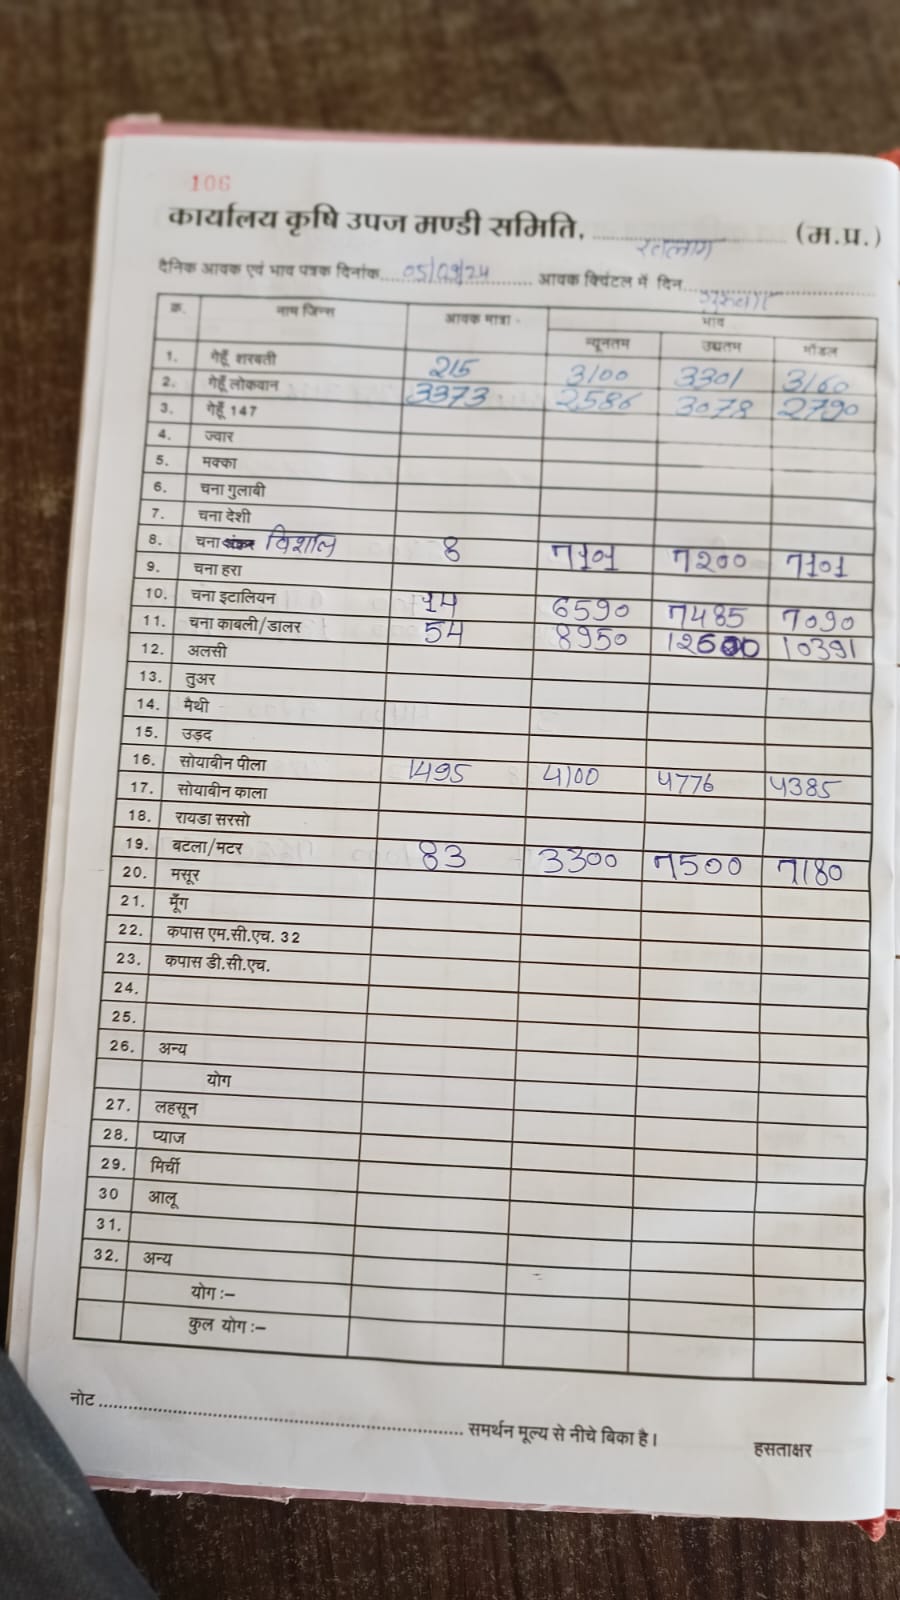 106
कार्यालय कृषि उपज मण्डी समिति, रतलाम (म.प्र.)
दैनिक आवक एवं भाव पत्रक दिनांक 05/09/24 आवक क्विंटल में दिन गुरूवार
क्र. नाम जिन्स आवक मात्रा भाव
न्यूनतम उच्चतम मॉडल
1. गेहूँ शरबती 215 3100 3301 3160
2. गेहूँ लोकवान 3373 2586 3078 2790
3. गेहूँ 147
4. ज्वार
5. मक्का
6. चना गुलाबी
7. चना देशी
8. चना विशाल 8 7101 7200 7101
9. चना हरा
10. चना इटालियन 14 6590 7485 7090
11. चना काबली/डालर 54 8950 12600 10391
12. अलसी
13. तुअर
14. मैथी
15. उड़द
16. सोयाबीन पीला 1495 4100 4776 4385
17. सोयाबीन काला
18. रायडा सरसो
19. बटला/मटर 83 3300 7500 7180
20. मसूर
21. मूँग
22. कपास एम.सी.एच. 32
23. कपास डी.सी.एच.
24.
25.
26. अन्य
योग
27. लहसून
28. प्याज
29. मिर्ची
30 आलू
31.
32. अन्य
योग :-
कुल योग :-
नोट ........ समर्थन मूल्य से नीचे बिका है।
हसताक्षर